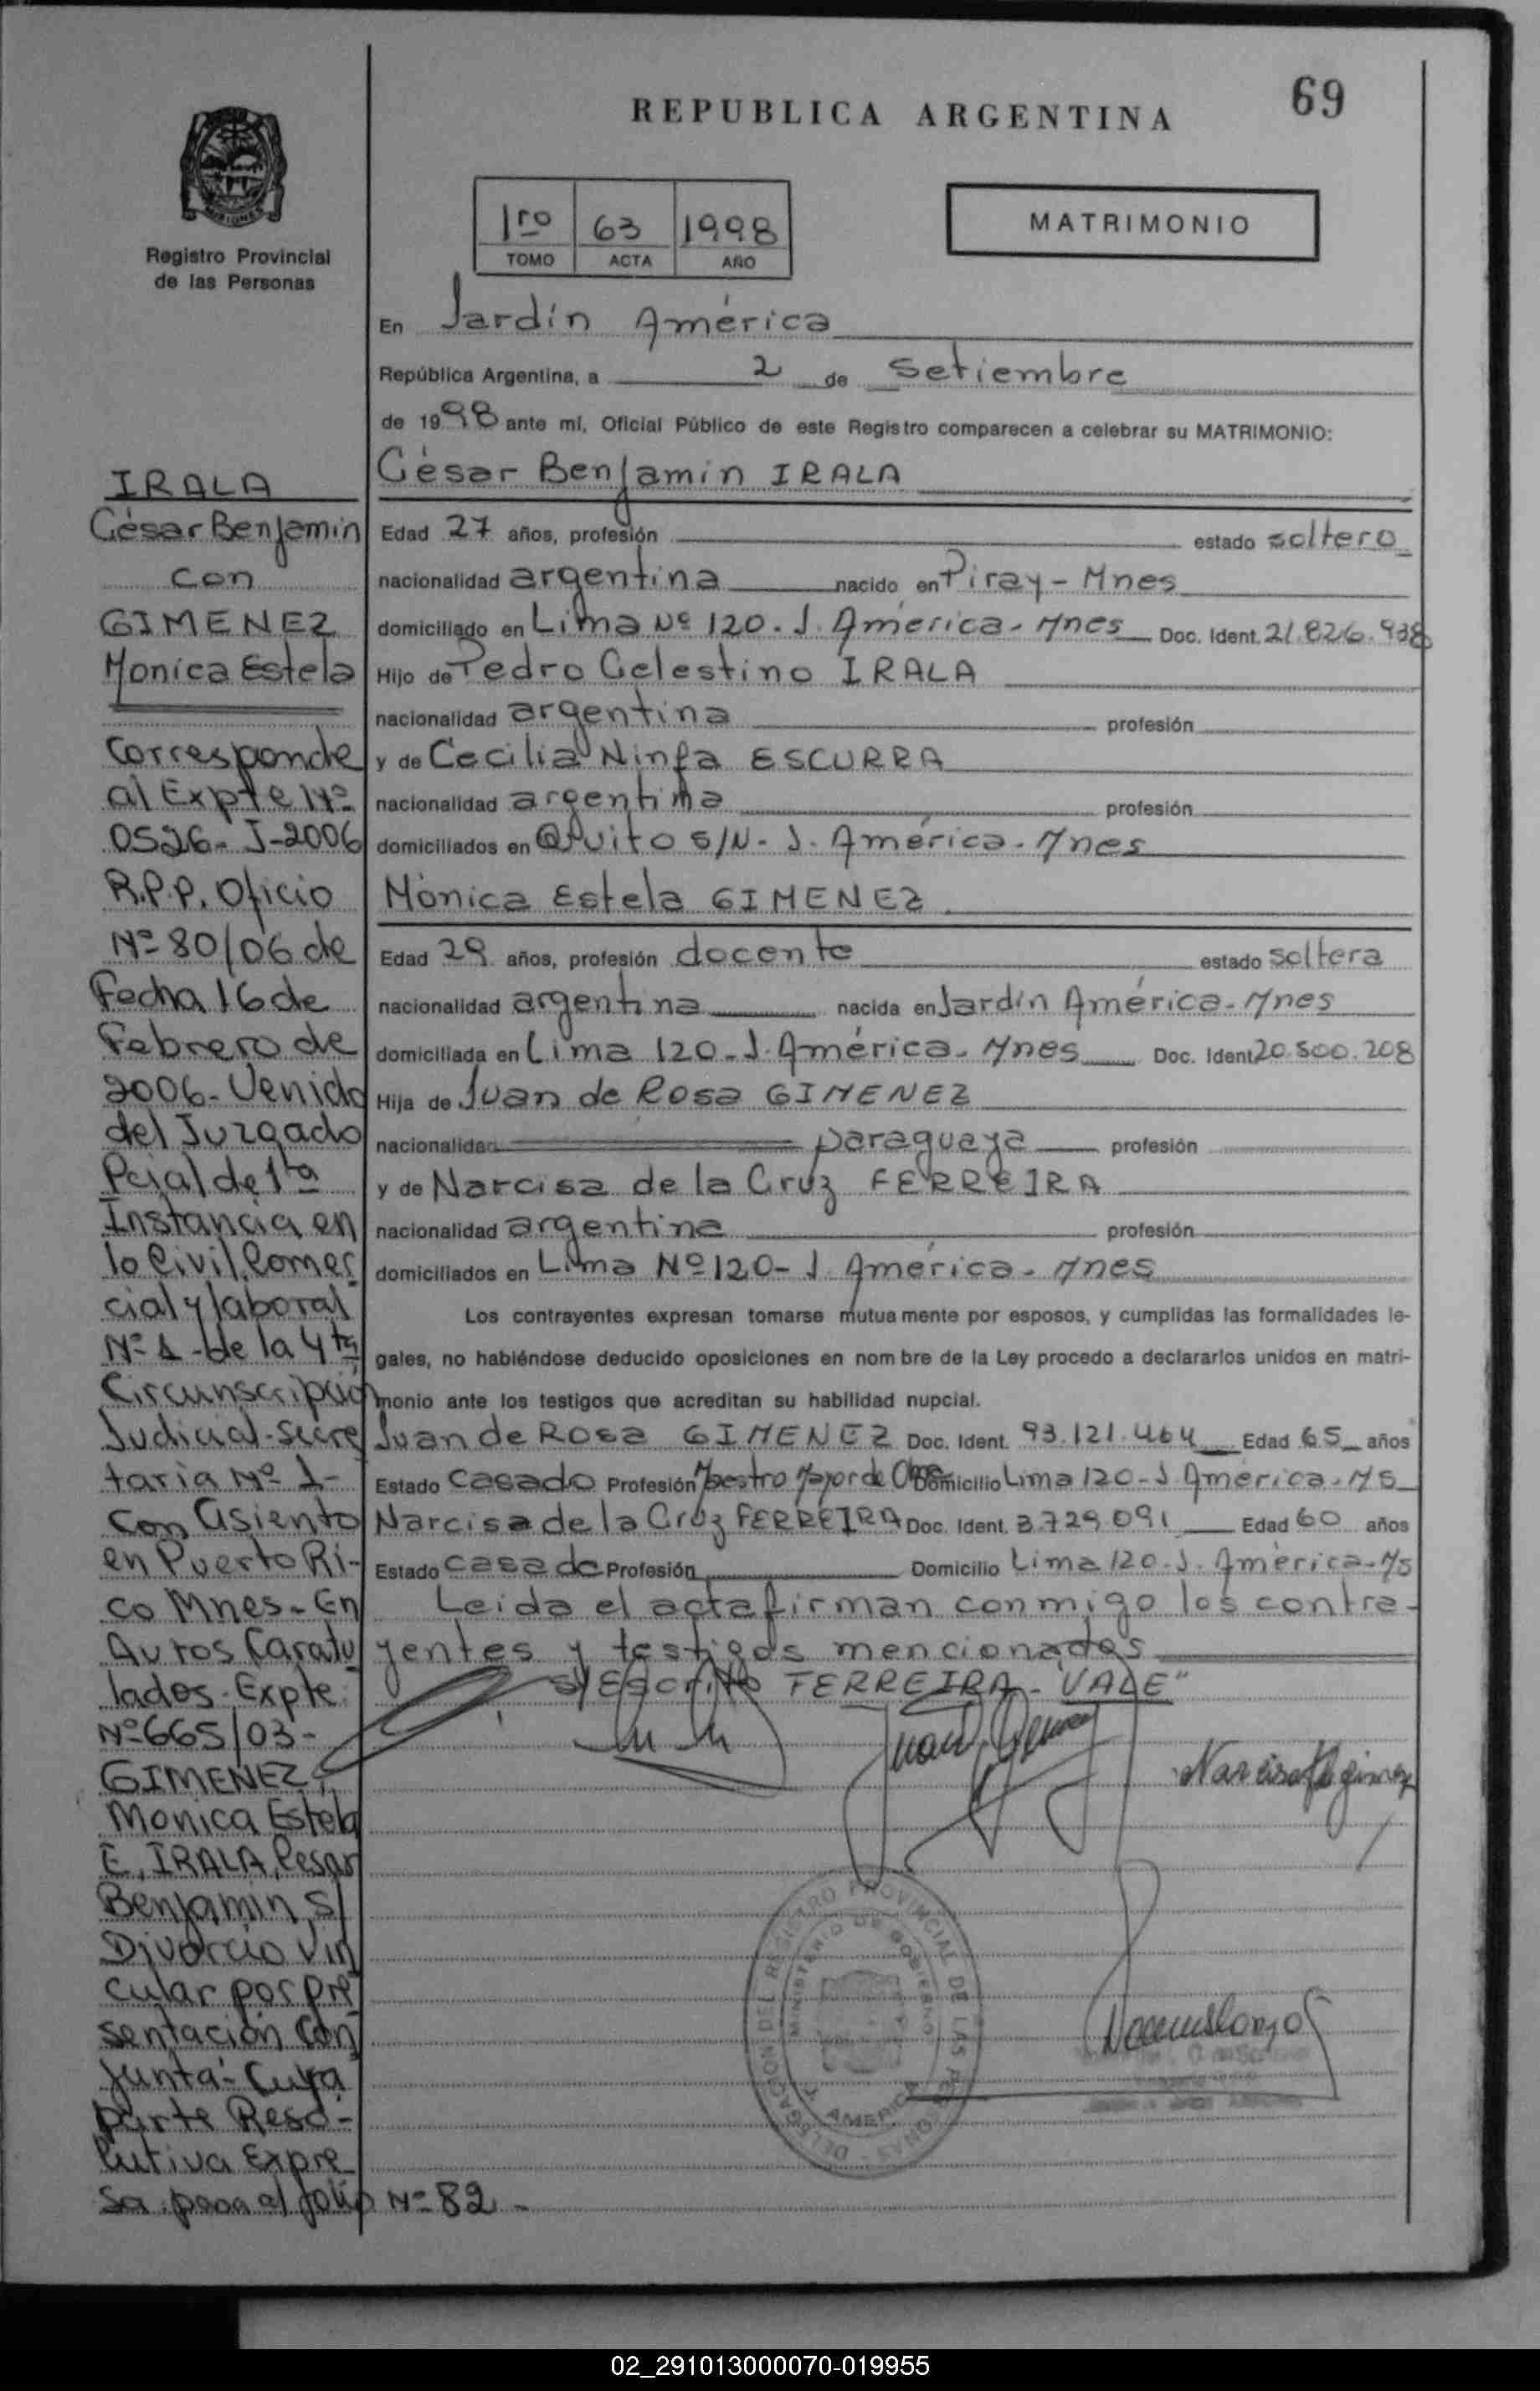 69
REPUBLICA ARGENTINA
MISIONES
Registro Provincial
de las Personas
1ro 63 1998
TOMO ACTA AÑO
MATRIMONIO
En Jardín América
República Argentina, a 2 de Setiembre
de 1998 ante mí, Oficial Público de este Registro comparecen a celebrar su MATRIMONIO:
César Benjamín IRALA
Edad 27 años, profesión estado soltero
nacionalidad argentina nacido en Piray - Mnes
domiciliado en Lima Nº 120. J. América - Mnes Doc. Ident. 21.826.938
Hijo de Pedro Celestino IRALA
nacionalidad argentina profesión
y de Cecilia Ninfa ESCURRA
nacionalidad argentina profesión
domiciliados en Quito S/N - J. América - Mnes
Mónica Estela GIMENEZ
Edad 29 años, profesión docente estado soltera
nacionalidad argentina nacida en Jardín América - Mnes
domiciliada en Lima 120 - J. América - Mnes Doc. Ident 20.500.208
Hija de Juan de Rosa GIMENEZ
nacionalidad paraguaya profesión
y de Narcisa de la Cruz FERREIRA
nacionalidad argentina profesión
domiciliados en Lima Nº 120 - J. América - Mnes
Los contrayentes expresan tomarse mutua mente por esposos, y cumplidas las formalidades le-
gales, no habiéndose deducido oposiciones en nom bre de la Ley procedo a declararlos unidos en matri-
monio ante los testigos que acreditan su habilidad nupcial.
Juan de Rosa GIMENEZ Doc. Ident. 93.121.464 Edad 65 años
Estado casado Profesión Maestro Mayor de Obra Domicilio Lima 120 - J. América - Ms
Narcisa de la Cruz FERREIRA Doc. Ident. 3.729.091 Edad 60 años
Estado casada Profesión Domicilio Lima 120 - J. América - Ms
Leida el acta firman conmigo los contra-
yentes y testigos mencionados
s/Escrito FERREIRA - VALE"
IRALA
César Benjamin
con
GIMENEZ
Monica Estela
Corresponde
al Expte Nº
0526 - J-2006
R.P.P. Oficio
Nº 80/06 de
Fecha 16 de
Febrero de
2006 - Venido
del Juzgado
Pcial de 1ta
Instancia en
lo Civil, Comer
cial y laboral
Nº 1 - de la 4ta
Circunscripción
Judicial - Secre
taria Nº 1 -
Con asiento
en Puerto Ri-
co Mnes - En
Autos Caratu
lados - Expte
Nº 665/03 -
GIMENEZ,
Monica Estela
E, IRALA, Cesar
Benjamin S/
Divorcio Vin
cular por Pre
sentación Con
junta - Cuya
parte Reso-
lutiva Expre
sa: pasa al folio Nº 82 -
DELEGACION DEL REGISTRO PROVINCIAL DE LAS PERSONAS
MINISTERIO DE GOBIERNO
J. AMERICA
02_291013000070-019955